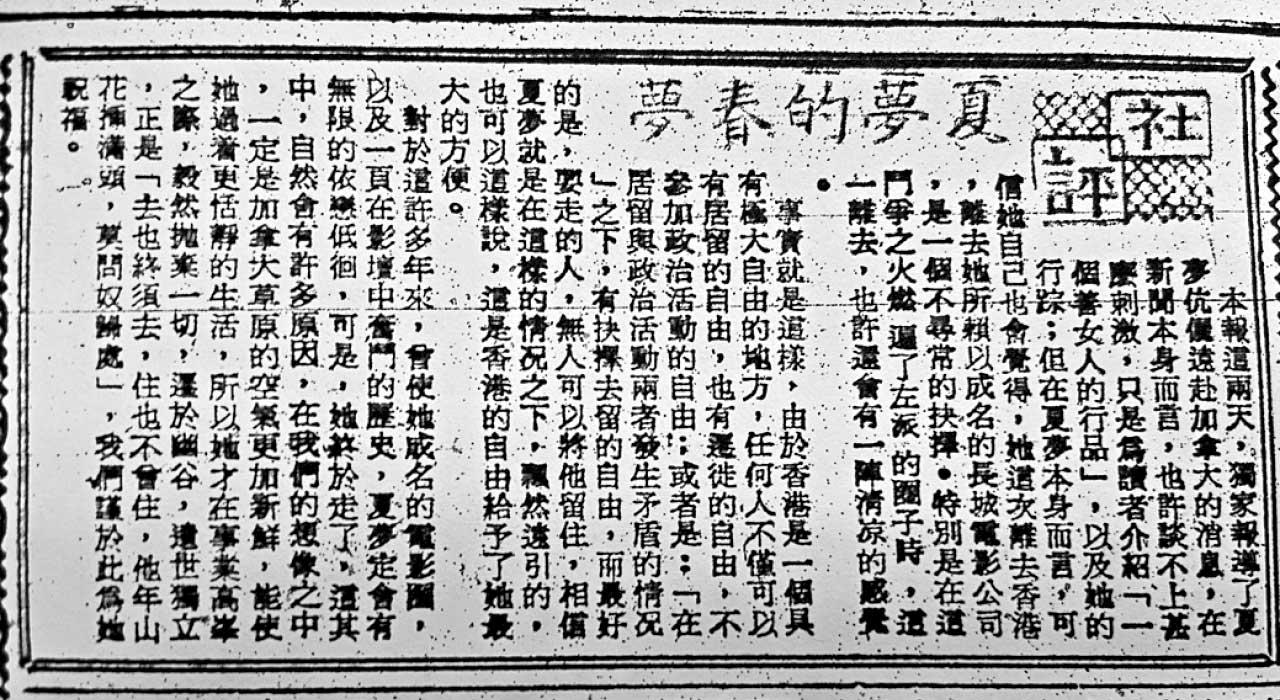 社評
夏夢的春夢
本報這兩天，獨家報導了夏
夢伉儷遠赴加拿大的消息，在
新聞本身而言，也許談不上甚
麼刺激，只是爲讀者介紹「一
個善女人的行品」，以及她的
行踪；但在夏夢本身而言，可
信她自己也會覺得，她這次離去香港
，離去她所賴以成名的長城電影公司
，是一個不尋常的抉擇。特別是在這
鬥爭之火燃遍了左派的圈子時，這
一離去，也許還會有一陣清凉的感覺
。
事實就是這樣，由於香港是一個具
有極大自由的地方，任何人不僅可以
有居留的自由，也有遷徙的自由，不
參加政治活動的自由；或者是：「在
居留與政治活動兩者發生矛盾的情況
」之下，有抉擇去留的自由，而最好
的是，要走的人，無人可以將他留住，相信
夏夢就是在這樣的情況之下，飄然遠引的，
也可以這樣說，這是香港的自由給予了她最
大的方便。
對於這許多年來，曾使她成名的電影圈，
以及一頁在影壇中奮鬥的歷史，夏夢定會有
無限的依戀低徊，可是，她終於走了，這其
中，自然會有許多原因，在我們的想像之中
，一定是加拿大草原的空氣更加新鮮，能使
她過着更恬靜的生活，所以她才在事業高峯
之際，毅然拋棄一切，遷於幽谷，遺世獨立
，正是「去也終須去，住也不會住，他年山
花插滿頭，莫問奴歸處」，我們謹於此爲她
祝福。